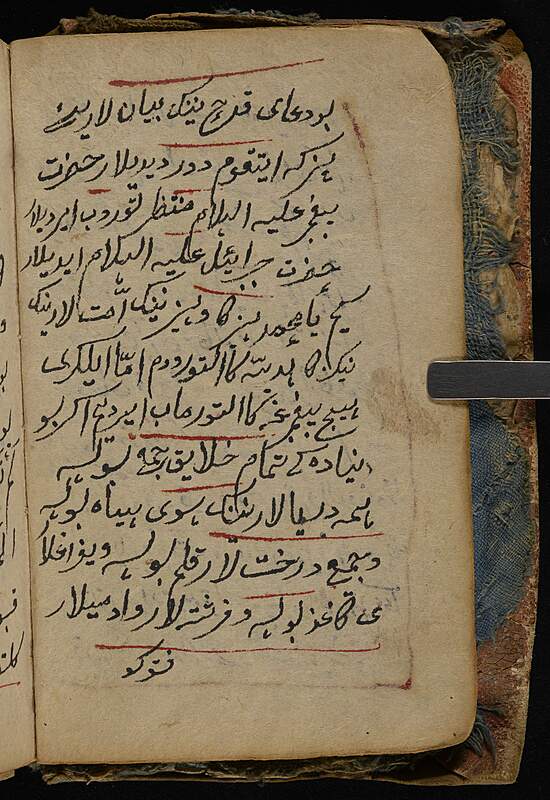 بو دعای قدح نینک بیان لاریدا
بیز که ایتقوم دور دیدیلار حضرت
پیغمبر علیه السلام منتظر توروب ایردیلار
حضرت جبرائیل علیه السلام ایدیلار
یا محمد بیز کا و سیز نینک امت لارینک
نینک کا هدیه کا کتوردوم اما ایلکری
هیچ پیغمبر غه کا التورماب ایردیم اکر بو
دنیاده کی تمام خلایق جمع بولسه
همه دریا لار نینک سوی سیاه بولسه
و جمع درخت لار قلم بولسه و یفراغلا
ری کاغذ بولسه و فرشته لار و ادمیلار